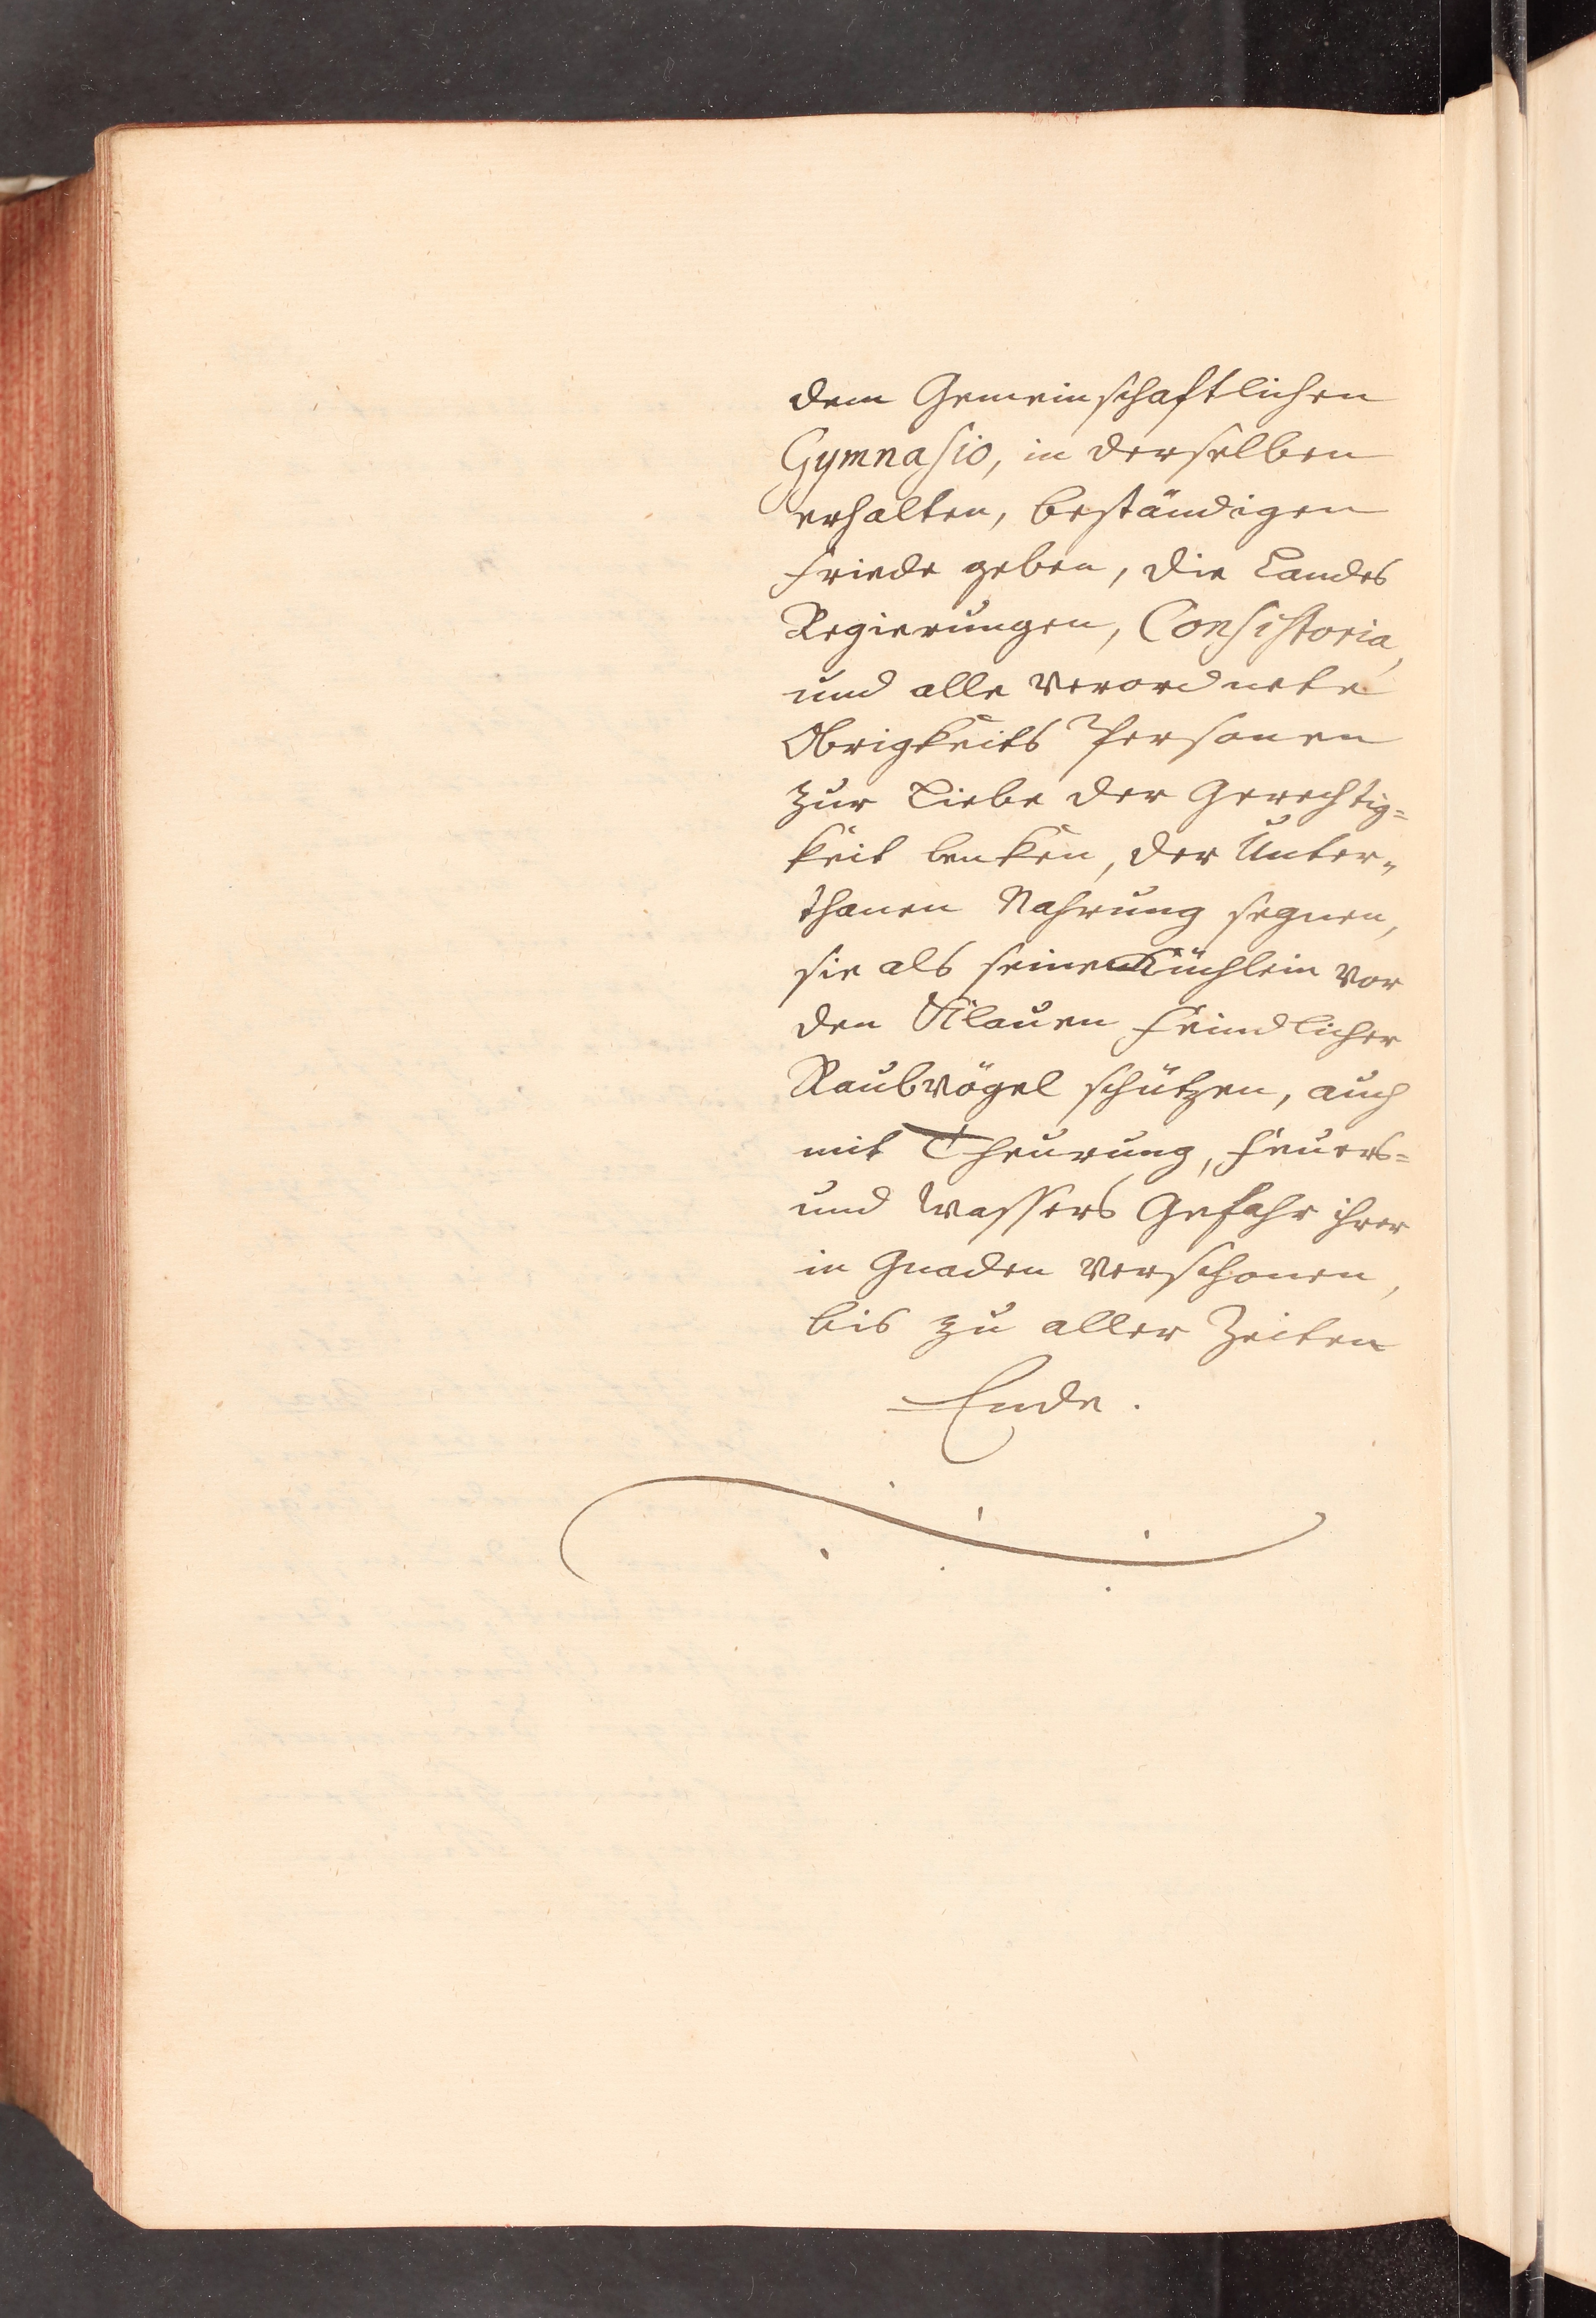 dem Gemeinschafftlichen
Gymnasio, in derselben
erhalten, beständigen
Friede geben, die Landes
Regierungen, Consistoria,
und alle verordnete
Obrigkeits Personen
zur Liebe der Gerechtig=
keit lenken, der Unter=
thanen Nahrung segnen,
sie als seine Küchlein vor
den Klauen feindlicher
Raubvögel schützen, auch
mit Theurung, Feuers=
und Wassers Gefahr ihrer
in Gnaden verschonen,
bis zu aller Zeiten
Ende.